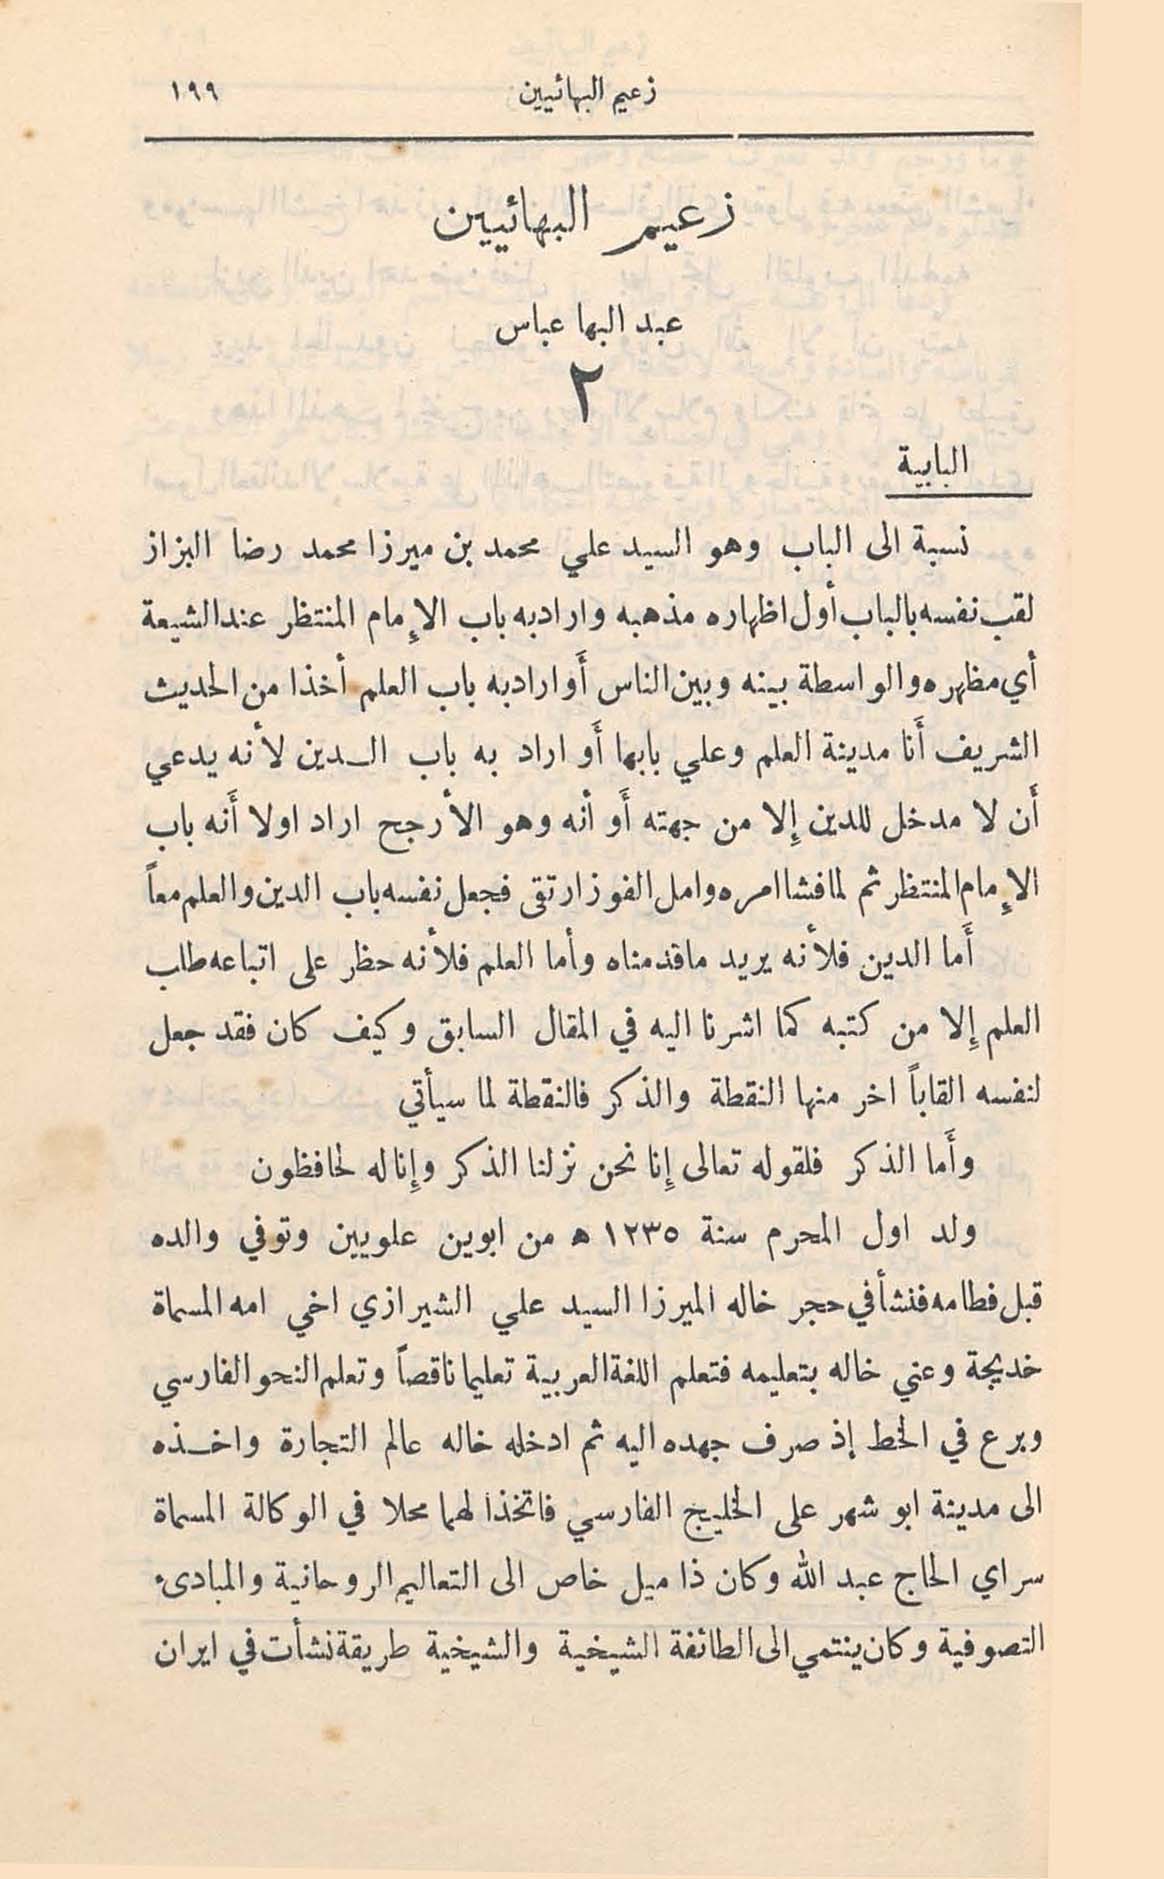 زعيم البهائيين ١٩٩
زعيم البهائيين
عبد البها عباس
٢
البابية
نسبة الى الباب وهو السيد علي محمد بن ميرزا محمد رضا البزاز
لقب نفسه بالباب أول اظهاره مذهبه واراد به باب الإمام المنتظر عند الشيعة
أي مظهره والواسطة بينه وبين الناس أو اراد به باب العلم أخذا من الحديث
الشريف أنا مدينة العلم وعلي بابها أو اراد به باب الـدين لأنه يدعي
أن لا مدخل للدين إلا من جهته أو أنه وهو الأرجح اراد اولا أنه باب
الإمام المنتظر ثم لما فشا امره وامل الفوز ارتقى فجعل نفسه باب الدين والعلم معاً
أما الدين فلأنه يريد ما قدمناه وأما العلم فلأنه حظر على اتباعه طلب
العلم إلا من كتبه كما اشرنا اليه في المقال السابق وكيف كان فقد جعل
لنفسه القاباً اخر منها النقطة والذكر فالنقطة لما سيأتي
وأما الذكر فلقوله تعالى إنا نحن نزلنا الذكر وإنا له لحافظون
ولد اول المحرم سنة ١٢٣٥ ه من ابوين علويين وتوفي والده
قبل فطامه فنشأ في حجر خاله الميرزا السيد علي الشيرازي اخي امه المسماة
خديجة وعني خاله بتعليمه فتعلم اللغة العربية تعليما ناقصاً وتعلم النحو الفارسي
وبرع في الخط إذ صرف جهده اليه ثم ادخله خاله عالم التجارة واخـذه
الى مدينة ابو شهر على الخليج الفارسي فاتخذا لهما محلا في الوكالة المسماة
سراي الحاج عبد الله وكان ذا ميل خاص الى التعاليم الروحانية والمبادىء
التصوفية وكان ينتمي الى الطائفة الشيخية والشيخية طريقة نشأت في ايران